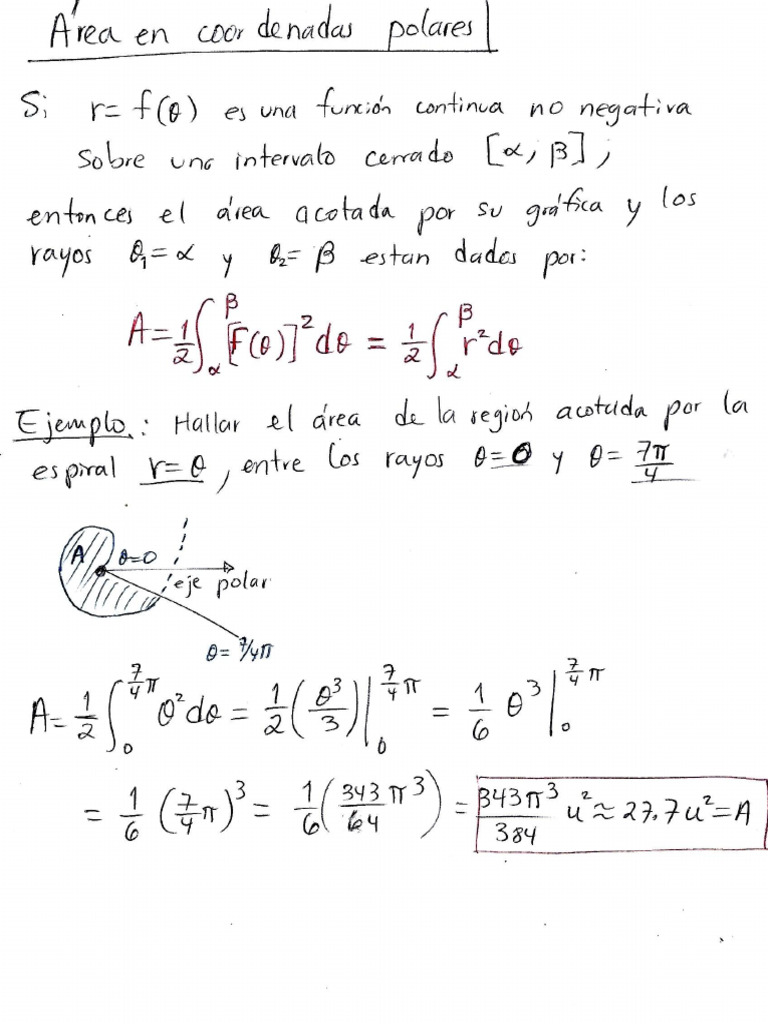 Área en coordenadas polares
Si r= f(θ) es una función continua no negativa
sobre una intervalo cerrado [α, β],
entonces el área acotada por su gráfica y los
rayos θ₁=α y θ₂= β estan dados por:
A=1/2∫_α^β [f(θ)]²dθ = 1/2∫_α^β r²dθ
Ejemplo: Hallar el área de la región acotada por la
espiral r=θ, entre los rayos θ=0 y θ= 7π/4
A θ=0
eje polar
θ= 7/4π
A= 1/2∫_0^{7/4π} θ²dθ = 1/2(θ³/3)|_0^{7/4π} = 1/6 θ³|_0^{7/4π}
= 1/6 (7/4π)³ = 1/6(343π³/64) = 343π³/384 u² ≈ 27.7u² = A